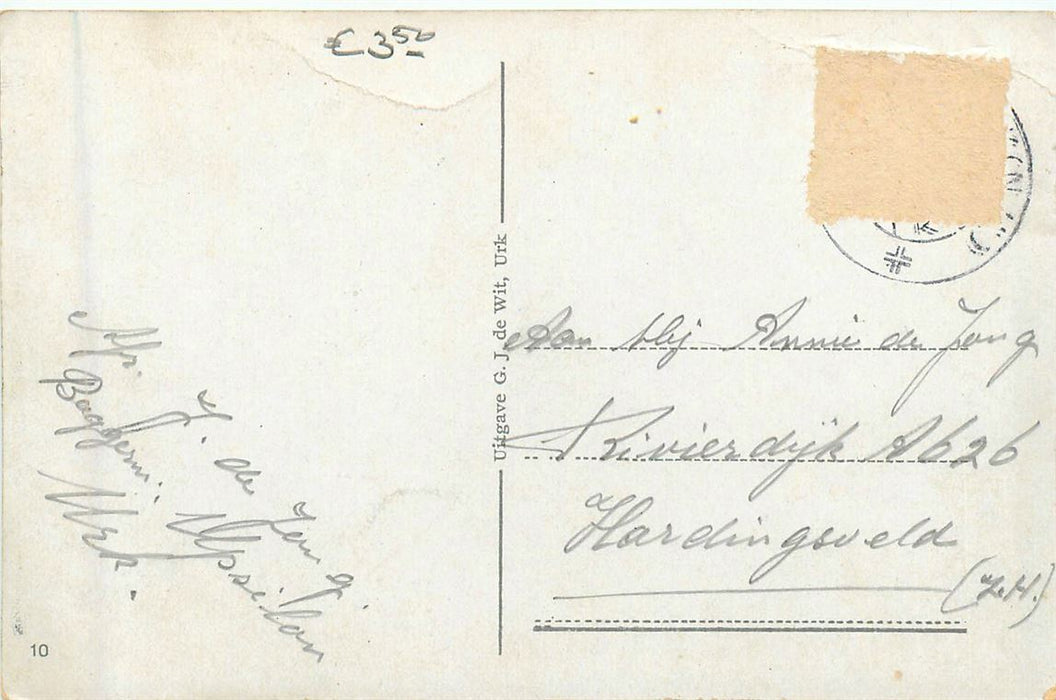 € 3 50
Afz. J. de Jong.
Baggerm. Ypsilon
Urk.
Uitgave G. J. de Wit, Urk
Aan Mej Annie de Jong
Rivierdijk A626
Hardingsveld
(Z.H.)
10